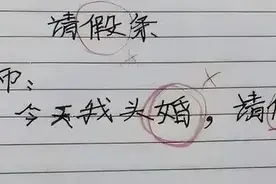 请假条
师：
今天我头婚，请